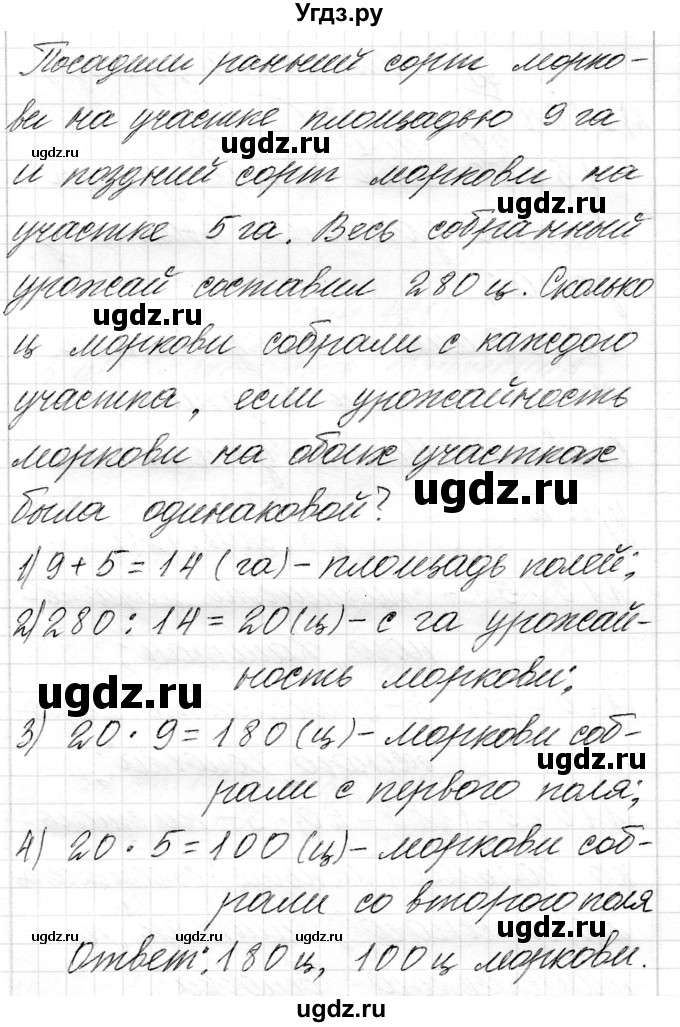 Угдз.ру
Посадили ранний сорт морко-
ви на участке площадью 9 га
ugdz.ru ugdz.ru
и поздний сорт моркови на
ugdz.ru
участке 5 га. Весь собранный
урожай составил 280 ц. Сколько
ugdz.ru
ц моркови собрали с каждого
участка, если урожайность
моркови на обоих участках
ugdz.ru
была одинаковой?
1) 9 + 5 = 14 (га) - площадь полей;
2) 280 : 14 = 20 (ц) - с га урожай-
ность моркови;
ugdz.ru
3) 20 · 9 = 180 (ц) - моркови соб-
ugdz.ru
рали с первого поля;
4) 20 · 5 = 100 (ц) - моркови соб-
рали со второго поля
ugdz.ru ugdz.ru ugdz.ru
Ответ: 180 ц, 100 ц моркови.
ugdz.ru